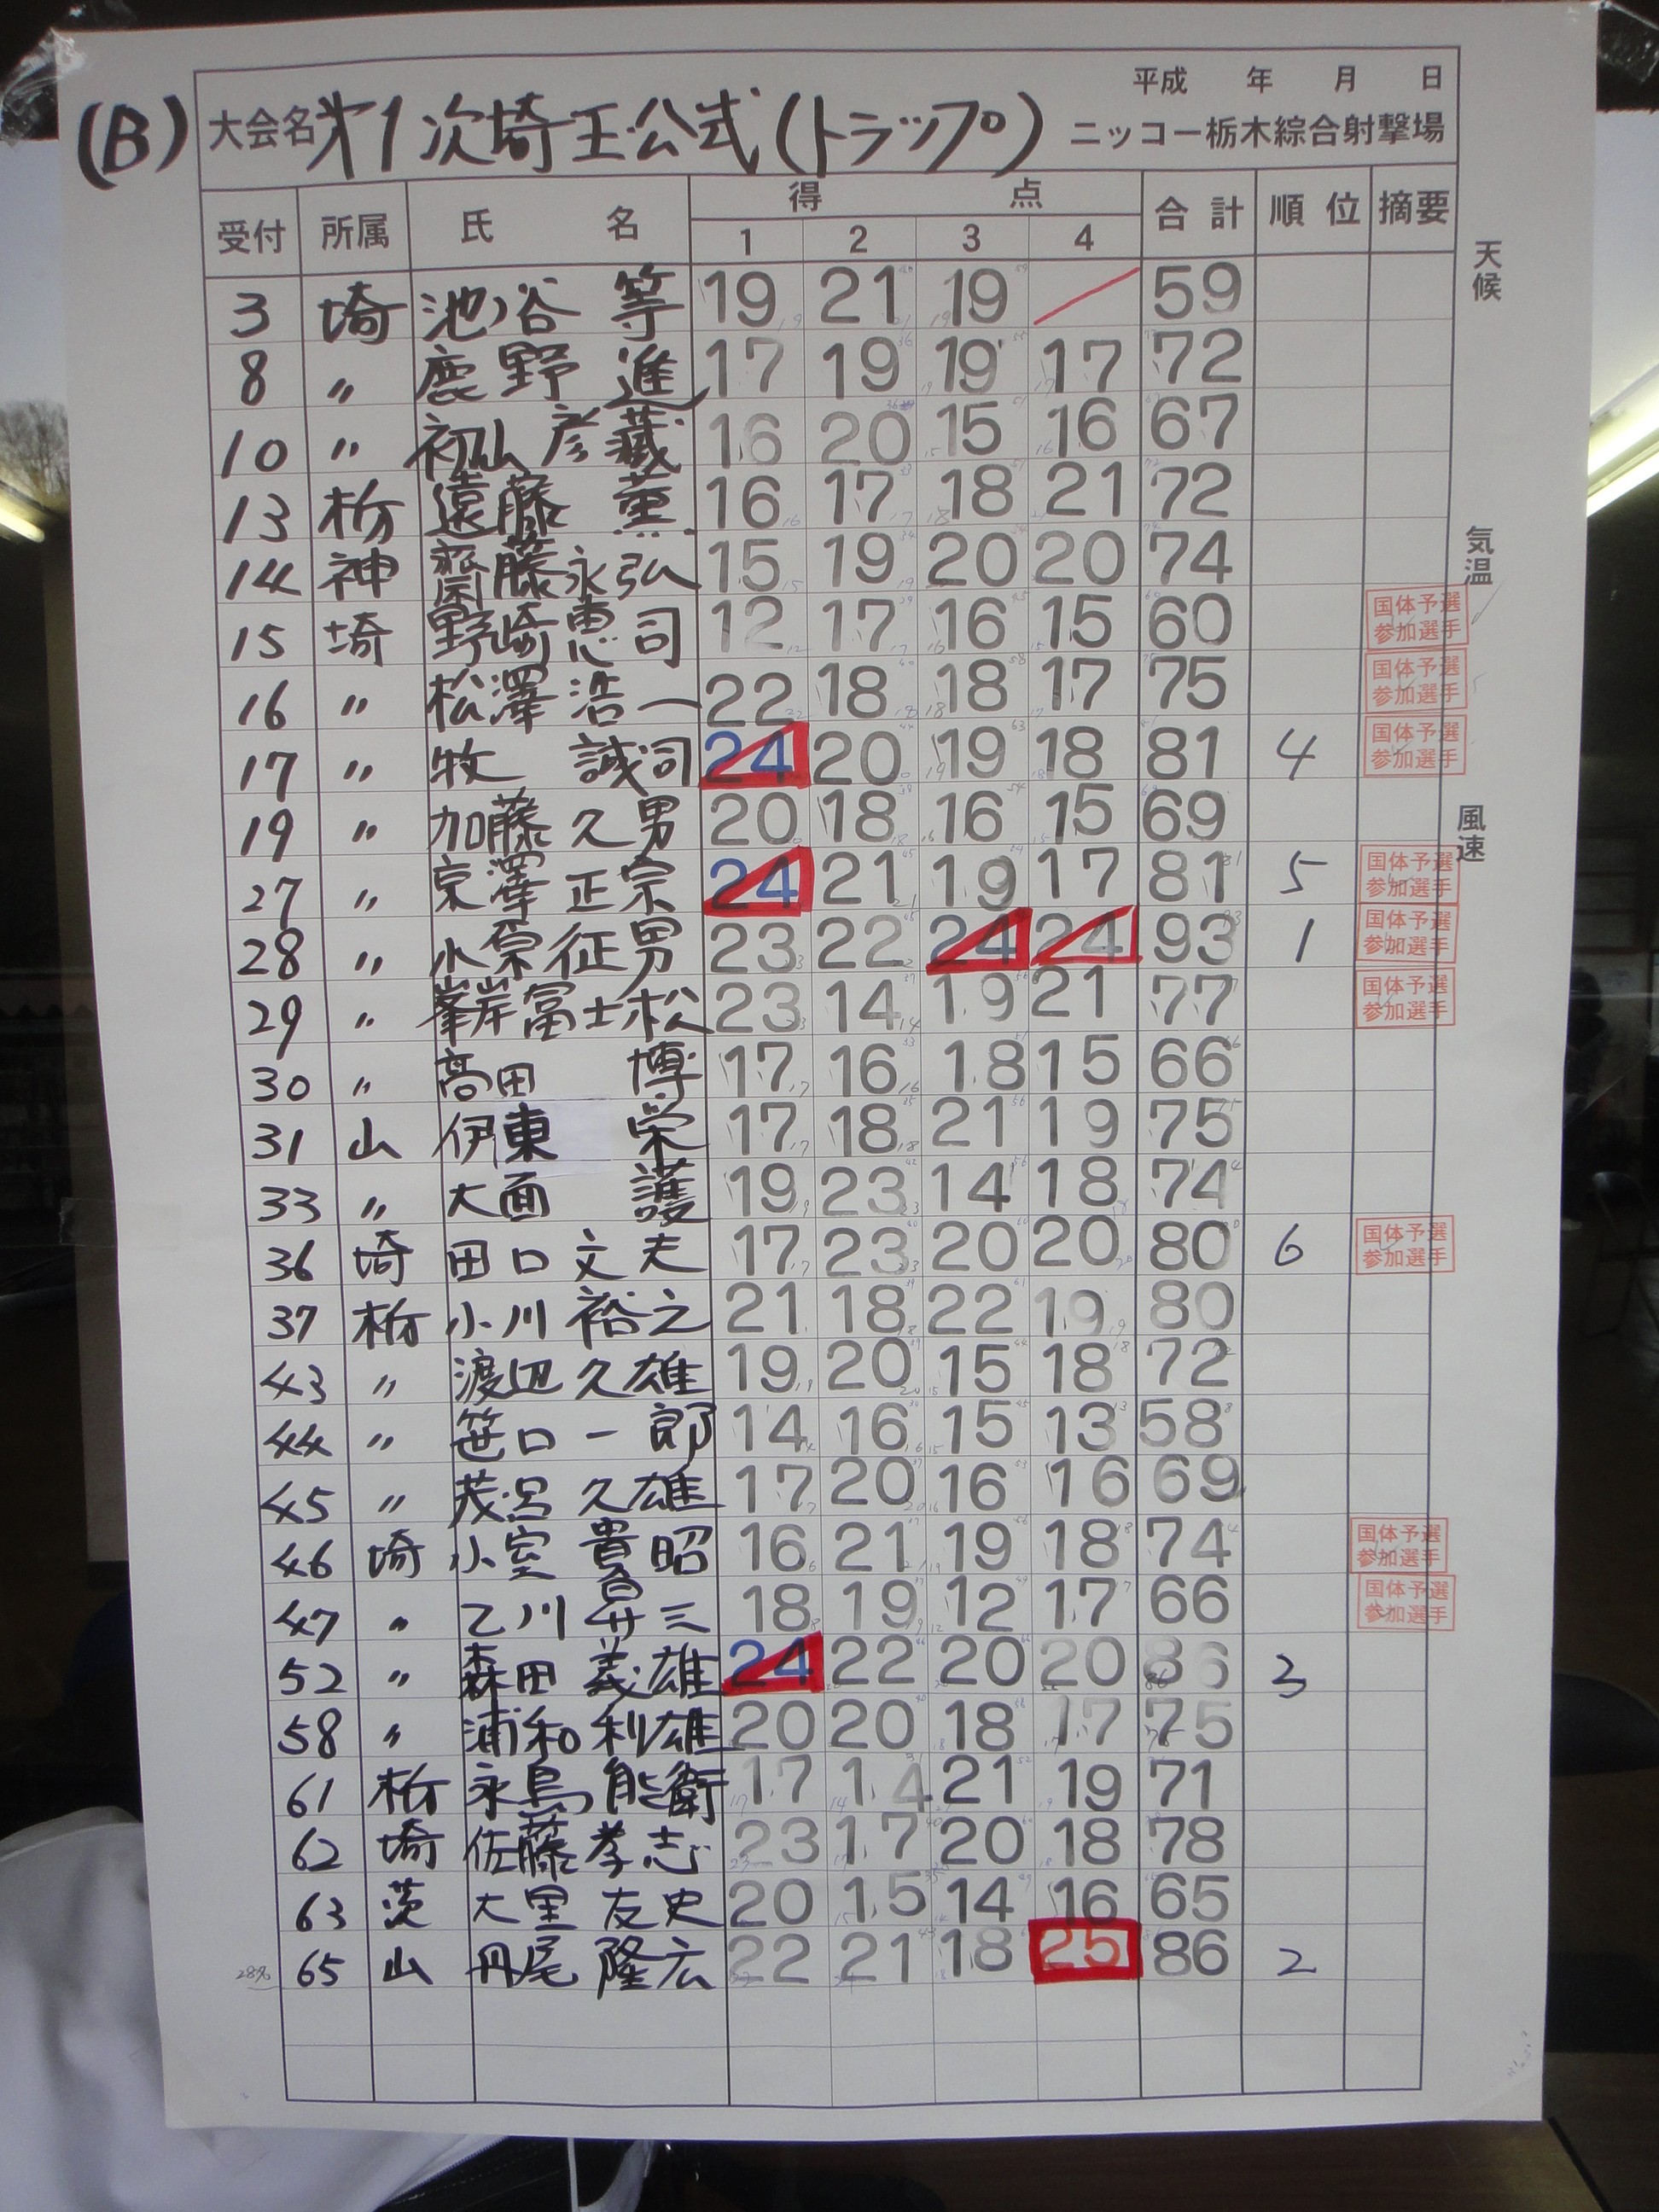 (B)
平成 年 月 日
大会名 才1次埼玉公式(トラップ) ニッコー栃木綜合射撃場
受付 所属 氏名 得点 合計 順位 摘要
1 2 3 4
天候
気温
風速
3 埼 池谷 等 19 21 19 59
8 〃 鹿野 進 17 19 19 17 72
10 〃 初仙彦蔵 16 20 15 16 67
13 栃 遠藤 薫 16 17 18 21 72
14 神 齋藤永弘 15 19 20 20 74
15 埼 野崎恵司 12 17 16 15 60 国体予選参加選手
16 〃 松澤浩一 22 18 18 17 75 国体予選参加選手
17 〃 牧 誠司 24 20 19 18 81 4 国体予選参加選手
19 〃 加藤久男 20 18 16 15 69
27 〃 京澤正宗 24 21 19 17 81 5 国体予選参加選手
28 〃 小原征男 23 22 24 24 93 1 国体予選参加選手
29 〃 峯岸冨士松 23 14 19 21 77 国体予選参加選手
30 〃 高田 博 17 16 18 15 66
31 山 伊東 栄 17 18 21 19 75
33 〃 大面 護 19 23 14 18 74
36 埼 田口文夫 17 23 20 20 80 6 国体予選参加選手
37 栃 小川裕之 21 18 22 19 80
43 〃 渡辺久雄 19 20 15 18 72
44 〃 笹口一郎 14 16 15 13 58
45 〃 茂呂久雄 17 20 16 16 69
46 埼 小室貴昭 16 21 19 18 74 国体予選参加選手
47 〃 乙川 三 18 19 12 17 66 国体予選参加選手
52 〃 森田義雄 24 22 20 20 86 3
58 〃 浦和利雄 20 20 18 17 75
61 栃 永島能衛 17 14 21 19 71
62 埼 佐藤孝志 23 17 20 18 78
63 茨 大里友史 20 15 14 16 65
65 山 丹尾隆広 22 21 18 25 86 2